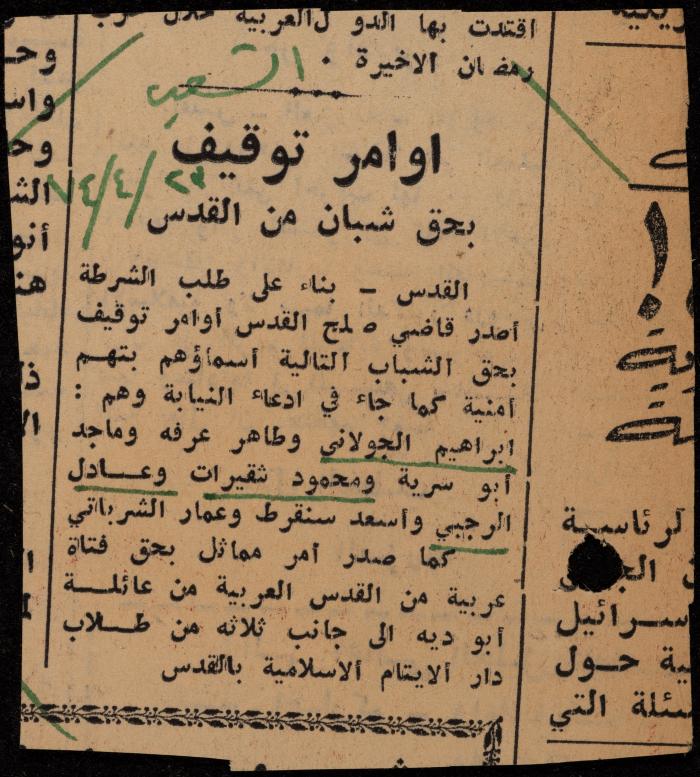 اقتدت بها الدول العربية خلال حرب
رمضان الاخيرة .
الشعب
اوامر توقيف
٧٤/٤/٢٣
بحق شبان من القدس
القدس – بناء على طلب الشرطة
أصدر قاضي صلح القدس أوامر توقيف
بحق الشباب التالية أسماؤهم بتهم
أمنية كما جاء في ادعاء النيابة وهم :
ابراهيم الجولاني وطاهر عرفه وماجد
أبو سرية ومحمود شقيرات وعادل
الرجبي وأسعد سنقرط وعمار الشرباتي
كما صدر أمر مماثل بحق فتاة
عربية من القدس العربية من عائلة
أبو ديه الى جانب ثلاثه من طلاب
دار الايتام الاسلامية بالقدس
لرئاسية
سرائيل
ية حول
سئلة التي